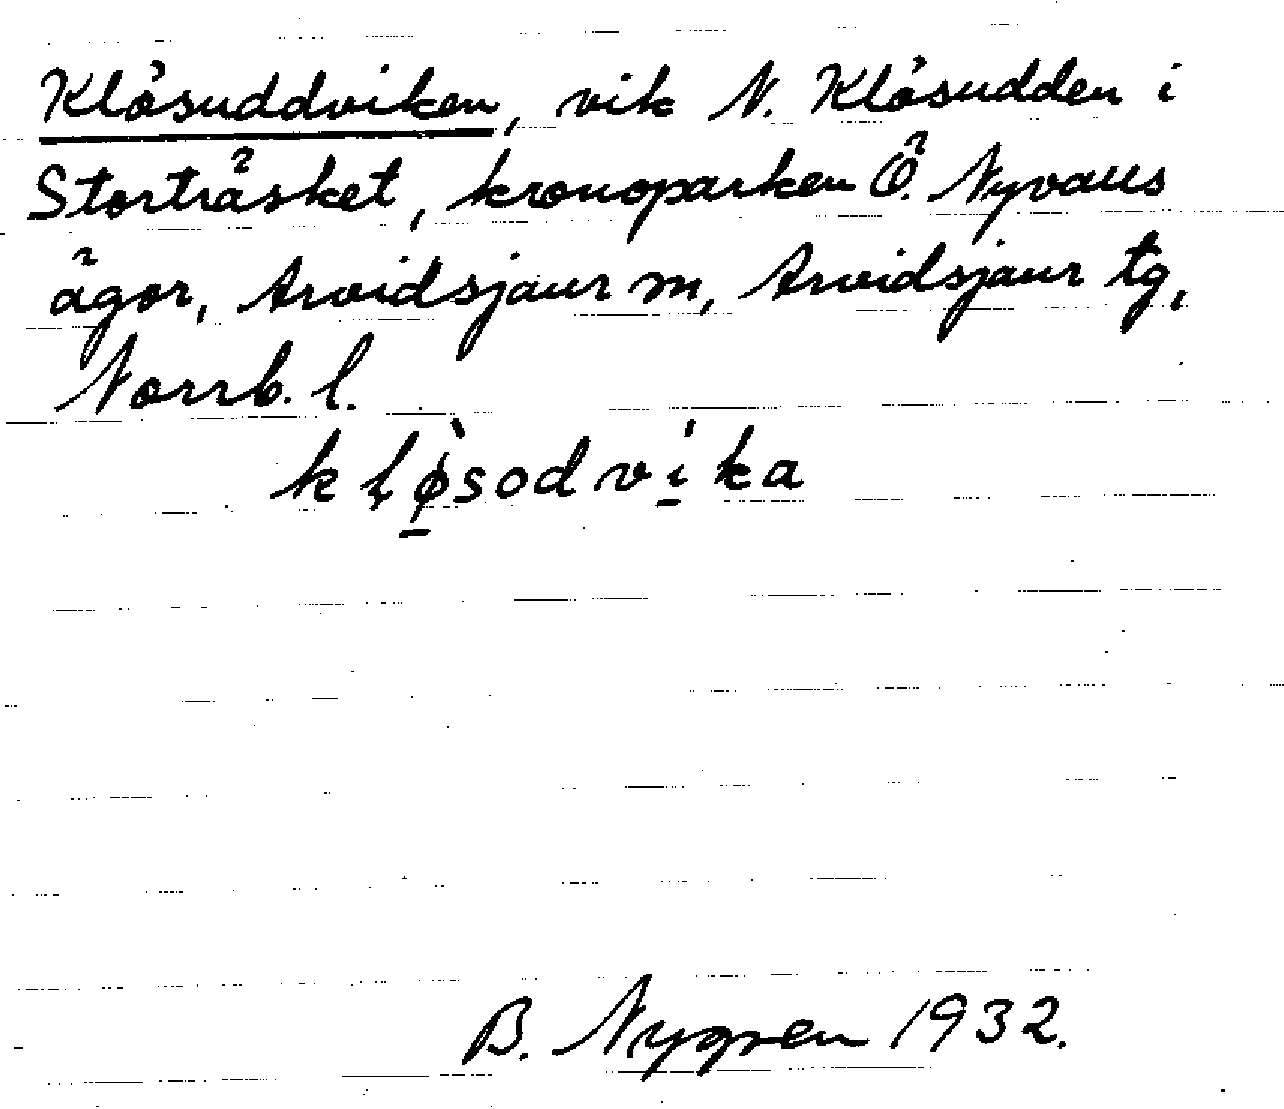 Klösuddviken, vik N. Klösudden i
Storträsket, kronoparken Ö. Nyvaus
ägor, Arvidsjaur m, Arvidsjaur tg,
Norrb. l.
kḷø̱̀sodvi̱̍ka
B. Nygren 1932.